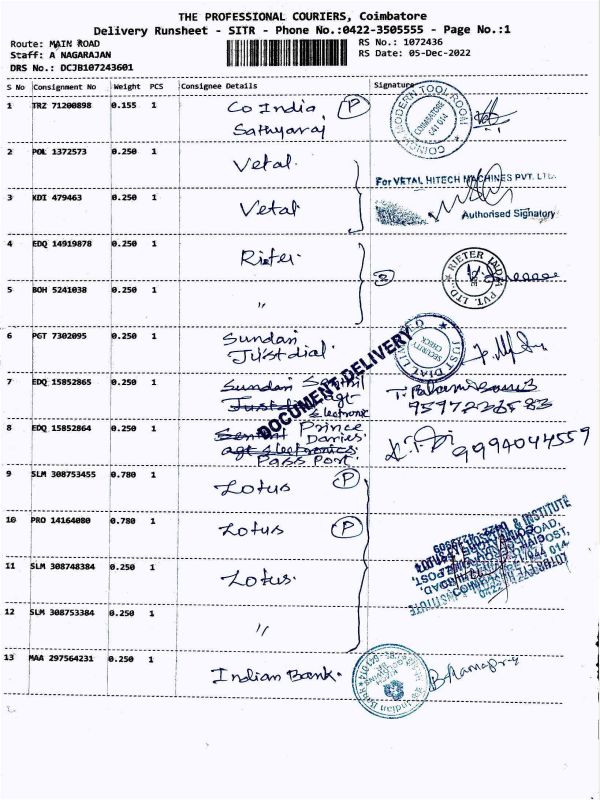 THE PROFESSIONAL COURIERS, Coimbatore
Delivery Runsheet - SITR - Phone No.:0422-3505555 - Page No.:1
Route: MAIN ROAD
RS No.: 1072436
Staff: A NAGARAJAN
RS Date: 05-Dec-2022
DRS No.: DCJB107243601
S No Consignment No Weight PCS Consignee Details Signature
1 TRZ 71200898 0.155 1 Co India P
Sathyaraj
COINDIA MODERN TOOL ROOM
COIMBATORE
641 014
2 POL 1372573 0.250 1 Vetal
For VETAL HITECH MACHINES PVT. LTD.
3 KDI 479463 0.250 1 Vetal
Authorised Signatory
4 EDQ 14919878 0.250 1 Rieter
2
RIETER INDIA PVT. LTD.
5 BOH 5241038 0.250 1 "
6 PGT 7302095 0.250 1 Sundari
Justdial
JUST DIAL LIMITED
SECURITY
CHECK
DOCUMENT DELIVERY
7 EDQ 15852865 0.250 1 Sundari
Justdial agt
Electronic
8 EDQ 15852864 0.250 1 Prince
Daries
agt electronics
Pass Port
9994044559
9 SLM 308753455 0.780 1 Lotus P
10 PRO 14164080 0.780 1 Lotus P
& INSTITUTE
11 SLM 308748384 0.250 1 Lotus
12 SLM 308753384 0.250 1 "
13 MAA 297564231 0.250 1 Indian Bank
Indian Bank